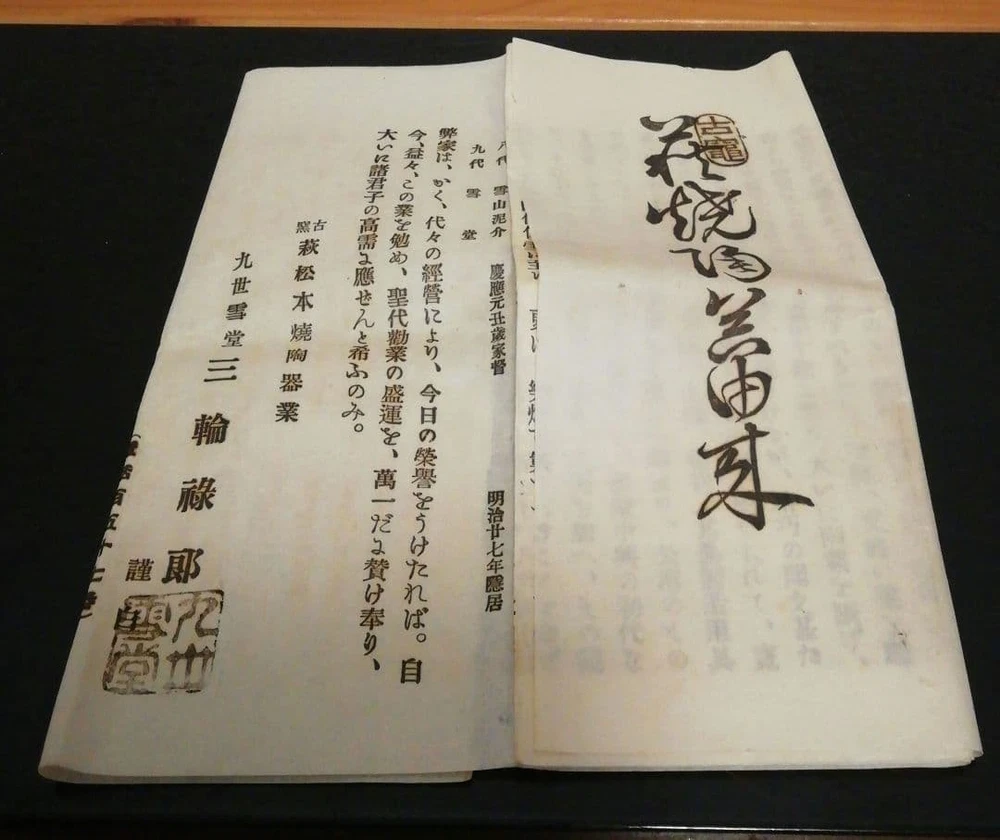 古竈
萩焼陶器由来
八代 雪山泥介 慶應元丑歳家督 明治廿七年隱居
九代 雪堂
弊家は、かく、代々の經營により、今日の榮譽をうけたれば。自
今、益々、この業を勉め、聖代勸業の盛運を、萬一だに賛け奉り、
大いに諸君子の高需に應せんと希ふのみ。
古窯 萩松本燒陶器業
九世雪堂 三輪祿郎 謹
九世雪堂